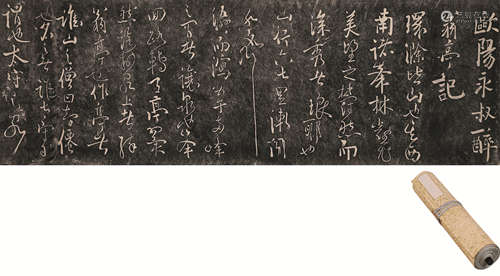 歐陽永叔醉
翁亭記
環滁皆山也其西
南諸峯林壑尤
美望之蔚然而
深秀者琅耶也
山行六七里漸聞
水聲
潺而瀉出于兩峰
之間者釀泉也峯
回路轉有亭翼
然臨于泉上者醉
翁亭也作亭者
誰山之僧曰智僊
也名之者誰太守自
謂也太守與客